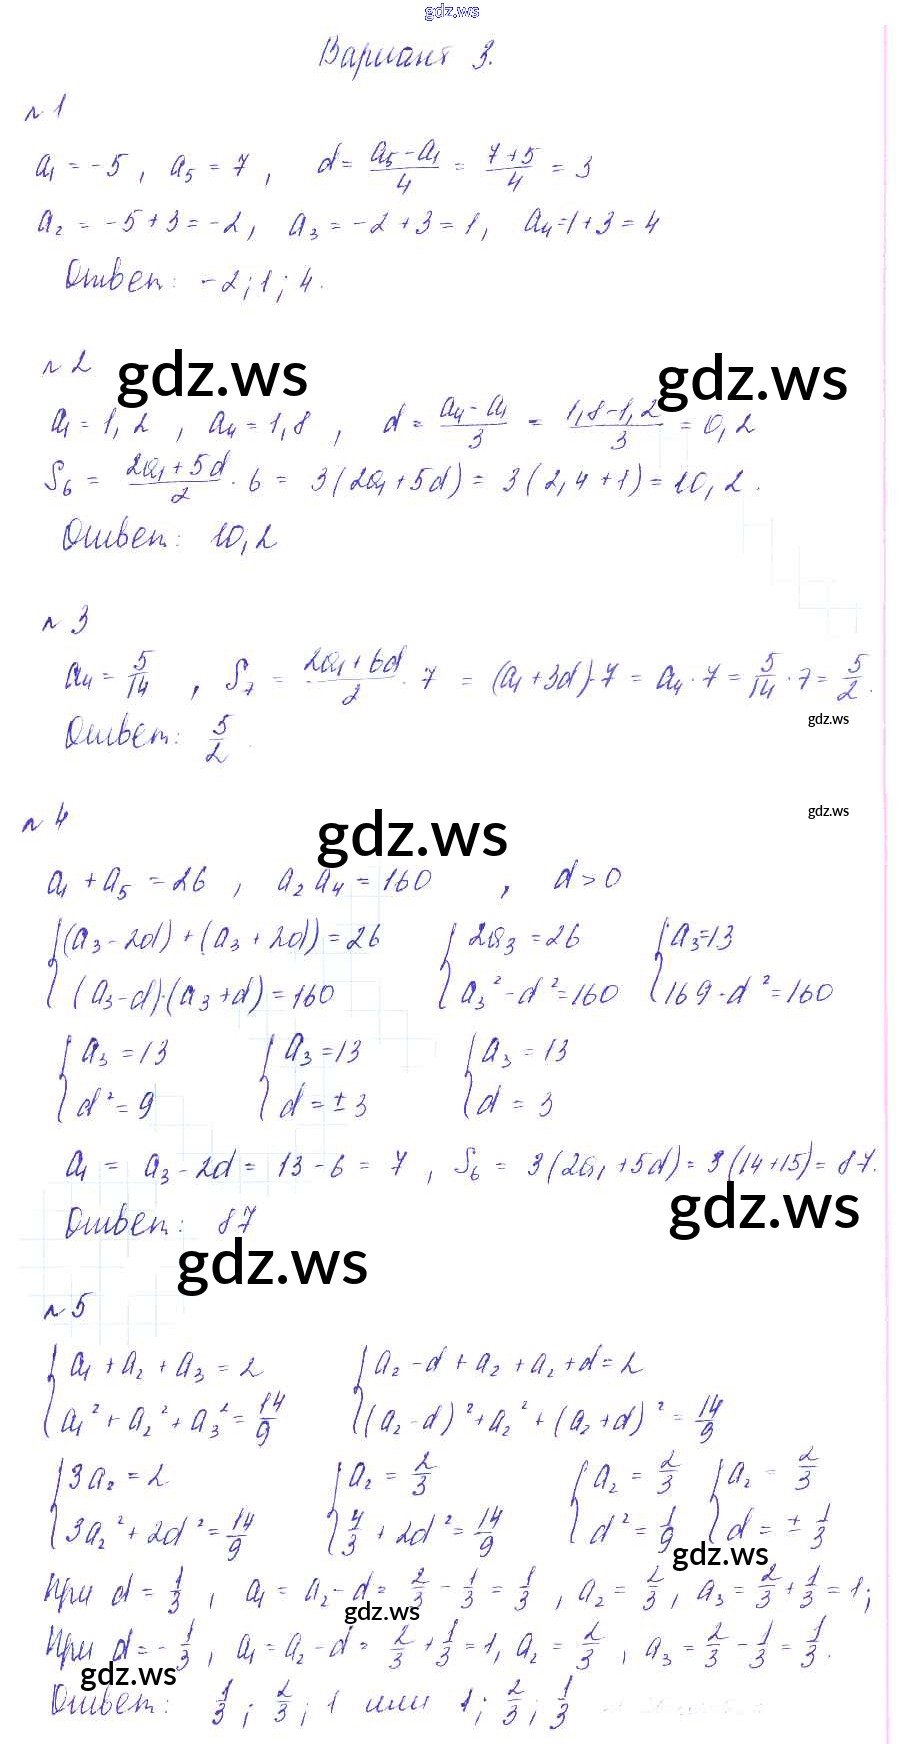 gdz.ws
Вариант 3.
№ 1
a₁ = -5, a₅ = 7, d = (a₅ - a₁)/4 = (7+5)/4 = 3
a₂ = -5+3 = -2, a₃ = -2+3 = 1, a₄ = 1+3 = 4
Ответ: -2; 1; 4.
№ 2 gdz.ws gdz.ws
a₁ = 1,2, a₄ = 1,8, d = (a₄ - a₁)/3 = (1,8-1,2)/3 = 0,2
S₆ = (2a₁+5d)/2 · 6 = 3(2a₁+5d) = 3(2,4+1) = 10,2.
Ответ: 10,2
№ 3
a₄ = 5/14, S₇ = (2a₁+6d)/2 · 7 = (a₁+3d)·7 = a₄·7 = 5/14·7 = 5/2.
gdz.ws
Ответ: 5/2.
№ 4 gdz.ws gdz.ws
a₁ + a₅ = 26, a₂a₄ = 160, d > 0
{(a₃-2d)+(a₃+2d) = 26 {2a₃ = 26 {a₃ = 13
{(a₃-d)·(a₃+d) = 160 {a₃²-d² = 160 {169-d² = 160
{a₃ = 13 {a₃ = 13 {a₃ = 13
{d² = 9 {d = ±3 {d = 3
a₁ = a₃-2d = 13-6 = 7, S₆ = 3(2a₁+5d) = 3(14+15) = 87.
Ответ: 87 gdz.ws
gdz.ws
№ 5
{a₁+a₂+a₃ = 2 {a₂-d+a₂+a₂+d = 2
{a₁²+a₂²+a₃² = 14/9 {(a₂-d)²+a₂²+(a₂+d)² = 14/9
{3a₂ = 2 {a₂ = 2/3 {a₂ = 2/3 {a₂ = 2/3
{3a₂²+2d² = 14/9 {4/3+2d² = 14/9 {d² = 1/9 {d = ±1/3
gdz.ws
При d = 1/3, a₁ = a₂-d = 2/3-1/3 = 1/3, a₂ = 2/3, a₃ = 2/3+1/3 = 1;
gdz.ws
При d = -1/3, a₁ = a₂-d = 2/3+1/3 = 1, a₂ = 2/3, a₃ = 2/3-1/3 = 1/3.
gdz.ws
Ответ: 1/3; 2/3; 1 или 1; 2/3; 1/3